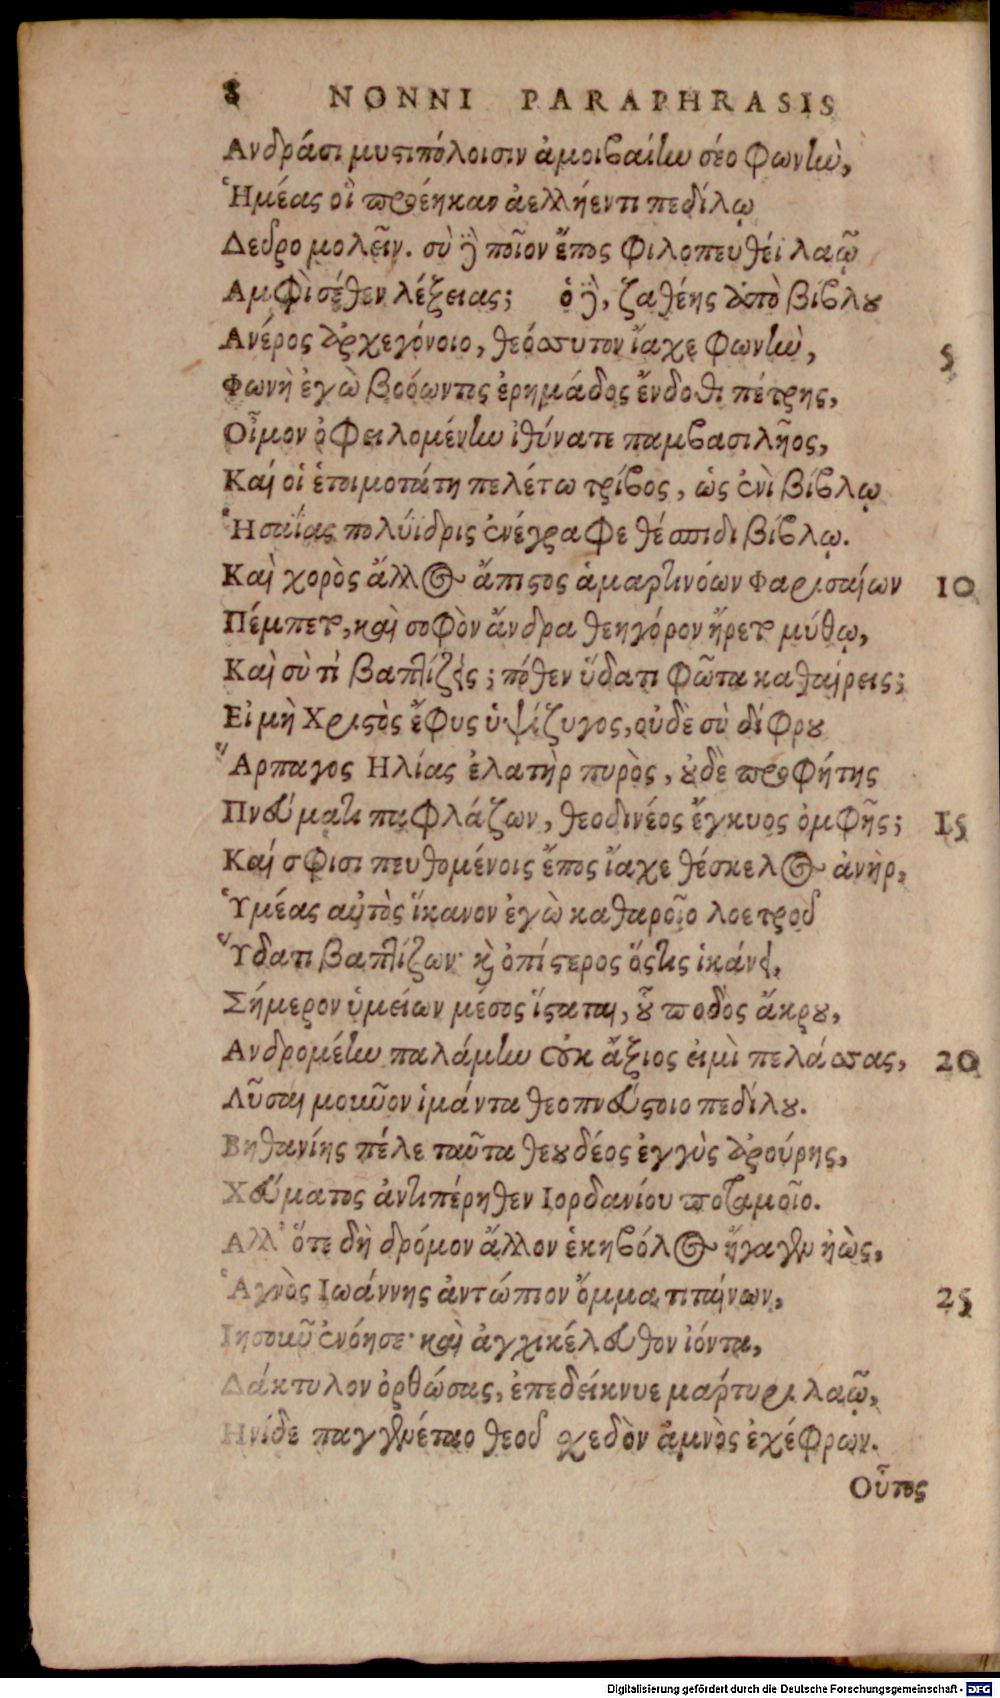 8 NONNI PARAPHRASIS
Ανδράσι μυστιπόλοισιν ἀμοιβαίην σέο φωνὴν,
Ἡμέας οἳ προέηκαν ἀελλήεντι πεδίλῳ
Δεῦρο μολεῖν. σὺ δὲ ποῖον ἔπος φιλοπευθέϊ λαῷ
Αμφὶ σέθεν λέξειας; ὁ δὲ, ζαθέης ἀπὸ βίβλου
Ανέρος ἀρχεγόνοιο, θεόσσυτον ἴαχε φωνὴν, 5
Φωνὴ ἐγὼ βοόωντος ἐρημάδος ἔνδοθι πέτρης,
Οἶμον ὀφειλομένην ἰθύνατε παμβασιλῆος,
Καί οἱ ἑτοιμοτάτη πελέτω τρίβος, ὡς ἐνὶ βίβλῳ
Ἡσαΐας πολύϊδρις ἐνέγραφε θέσπιδι βίβλῳ.
Καὶ χορὸς ἄλλος ἄπιστος ἁμαρτινόων Φαρισαίων 10
Πέμπετο, καὶ σοφὸν ἄνδρα θεηγόρον ἤρετο μύθῳ,
Καὶ σὺ τί βαπτίζεις; πόθεν ὕδατι φῶτα καθαίρεις;
Εἰ μὴ Χριστὸς ἔφυς ὑψίζυγος, οὐδὲ σὺ δίφρου
Ἅρπαγος Ηλίας ἐλατὴρ πυρὸς, οὐδὲ προφήτης
Πνεύματι παφλάζων, θεοδινέος ἔγκυος ὀμφῆς; 15
Καί σφισι πευθομένοις ἔπος ἴαχε θέσκελος ἀνὴρ,
Ὑμέας αὐτὸς ἵκανον ἐγὼ καθαροῖο λοετροῦ
Ὕδατι βαπτίζων· καὶ ὀπίστερος ὅστις ἱκάνει,
Σήμερον ὑμείων μέσος ἵσταται, οὗ ποδὸς ἄκρου,
Ανδρομέην παλάμην οὐκ ἄξιος εἰμὶ πελάσσας, 20
Λῦσαι μοῦνον ἱμάντα θεοπνεύστοιο πεδίλου.
Βηθανίης πέλε ταῦτα θεουδέος ἐγγὺς ἀρούρης,
Χεύματος ἀντιπέρηθεν Ιορδανίου ποταμοῖο.
Αλλ' ὅτε δὴ δρόμον ἄλλον ἑκηβόλος ἤγαγεν ἠὼς,
Ἁγνὸς Ιωάννης ἀντώπιον ὄμμα τιταίνων, 25
Ιησοῦν ἐνόησε· καὶ ἀγχικέλευθον ἰόντα,
Δάκτυλον ὀρθώσας, ἐπεδείκνυε μάρτυρι λαῷ,
Ηνίδε παγγενέταο θεοῦ σχεδὸν ἀμνὸς ἐχέφρων.
Οὗτος
Digitalisierung gefördert durch die Deutsche Forschungsgemeinschaft - DFG